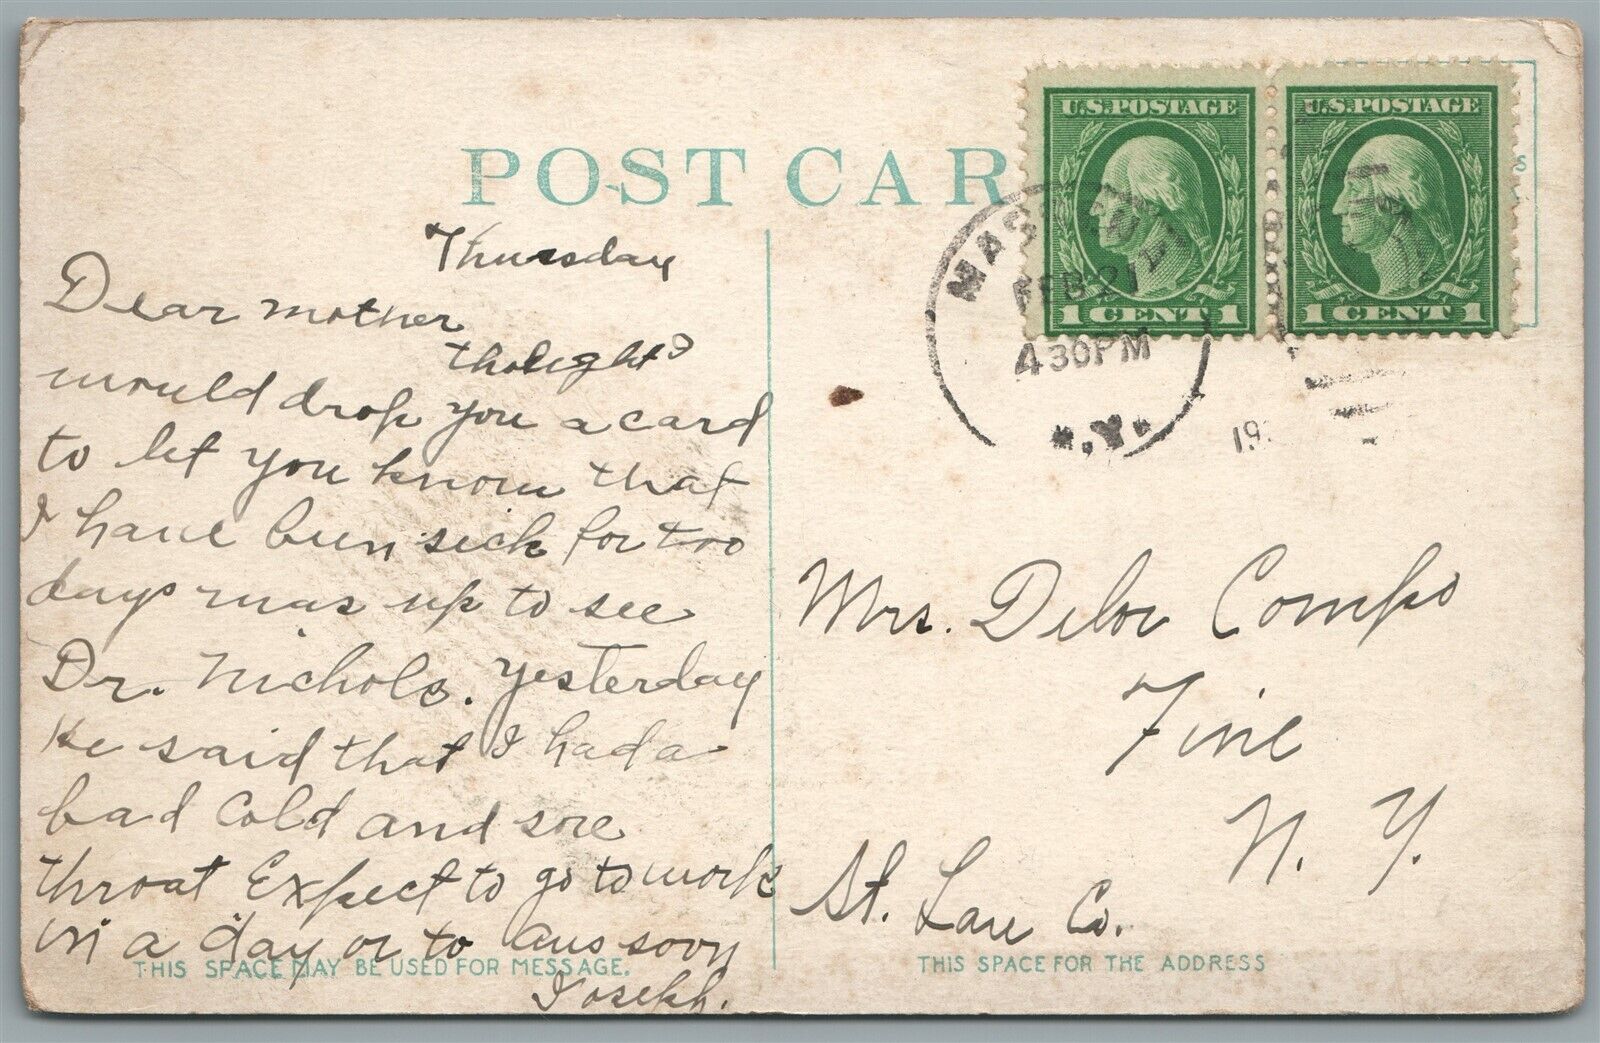 POST CAR
U.S. POSTAGE
1 CENT 1
U.S. POSTAGE
1 CENT 1
FEB 21
4 30 PM
N.Y.
19
Thursday
Dear mother
thought I
would drop you a card
to let you know that
I have been sick for two
days was up to see
Dr. Nichols. yesterday
He said that I had a
bad cold and sore
throat Expect to go to work
in a day or to ans soon
Joseph.
Mrs. Delor Compo
Fine
N. Y.
St. Law Co.
THIS SPACE MAY BE USED FOR MESSAGE.
THIS SPACE FOR THE ADDRESS